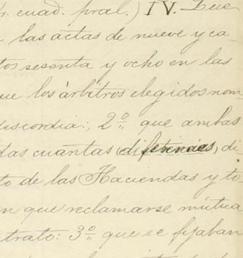 r. cuad. pral.) IV. Que
las actas de nueve y ca-
tos sesenta y ocho en las
que los árbitros elegidos nom
discordia: 2º que ambas
das cuantas (diferencias) di
to de las Haciendas y to
n que reclamarse mútua
trato: 3º que se fijaban